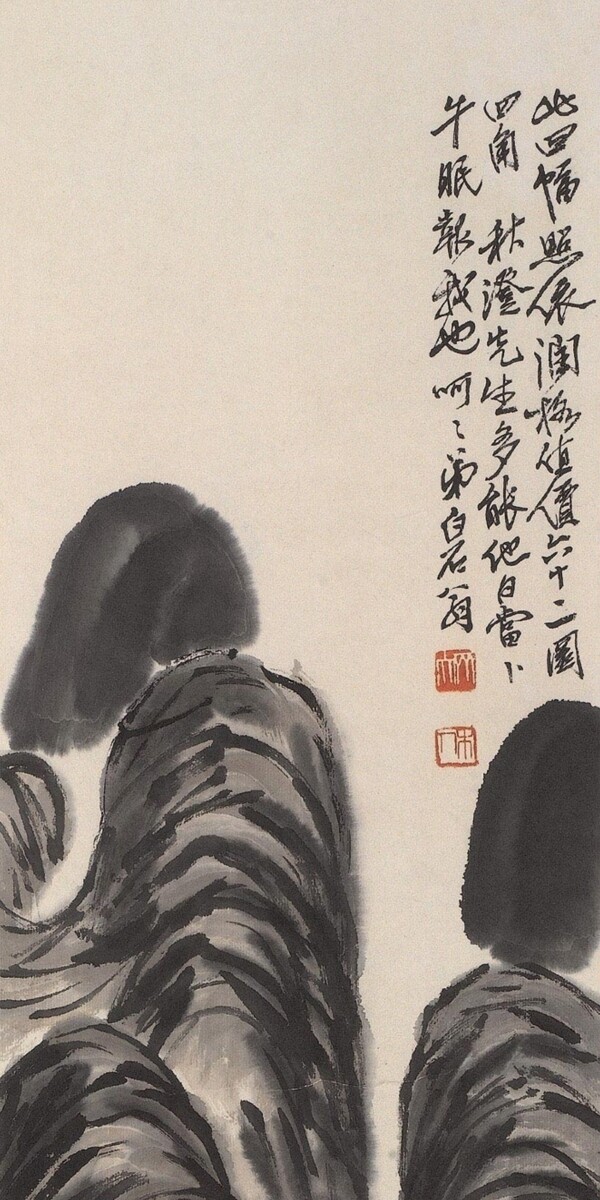 此四幅照依潤格值價六十二圓
四角 秋澄先生多能他日當卜
牛眠報我也呵〻弟白石翁
木人